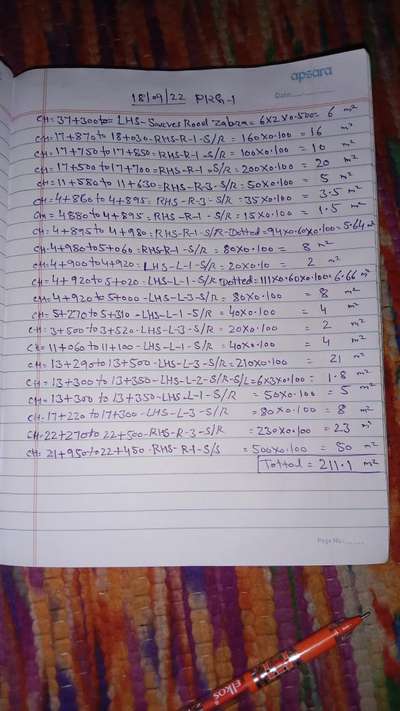 apsara
18/09/22 PKG-1
Date
CH:- 37+300to= LHS-Sarvies Road Zabra=6x2x0.500= 6 m²
CH:- 17+870 to 18+030-RHS-R-1-S/R = 160x0.100 = 16 m²
CH= 17+750 to 17+850=RHS-R-1-S/R = 100x0.100 = 10 m²
CH= 17+500 to 17+700=RHS-R-1-S/R= 200x0.100 = 20 m²
CH= 11+580 to 11+630-RHS-R-3-S/R= 50x0.100 = 5 m²
CH= 4+860 to 4+895= RHS-R-3-S/R= 35x0.100 = 3.5 m²
CH= 4880 to 4+895- RHS-R-1-S/R= 15x0.100 = 1.5 m²
CH= 4+895 to 4+980:RHS-R-1-S/R=Dotted=94x0.60x0.100=5.64 m²
CH-4+980 to 5+060:RHS-R-1-S/R = 80x0.100 = 8 m²
CH=4+900 to 4+920: LHS-L-1-S/R = 20x0.10 = 2 m²
CH= 4+920 to 5+020-LHS-L-1-S/R-Dotted:111x0.60x0.100=6.66 m²
CH= 4+920 to 5+000-LHS-L-3-S/R= 80x0.100 = 8 m²
CH= 5+270 to 5+310-LHS-L-1-S/R= 40x0.100 = 4 m²
CH: 3+500 to 3+520-LHS-L-3-S/R= 20x0.100 = 2 m²
CH= 11+060 to 11+100-LHS-L-1-S/R= 40x0.100 = 4 m²
CH= 13+290 to 13+500-LHS-L-3-S/R=210x0.100 = 21 m²
CH= 13+300 to 13+350-LHS-L-2-S/R-S/L=6x3x0.100= 1.8 m²
CH= 13+300 to 13+350-LHS-L-1-S/R = 50x0.100 = 5 m²
CH= 17+220 to 17+300-LHS-L-3-S/R =80x0.100 = 8 m²
CH=22+270 to 22+500-RHS-R-3-S/R =230x0.100 = 23 m²
CH= 21+950 to 22+450-RHS-R-1-S/S = 500x0.100 = 50 m²
Tottad = 211.1 m²
Page No.:
elkos